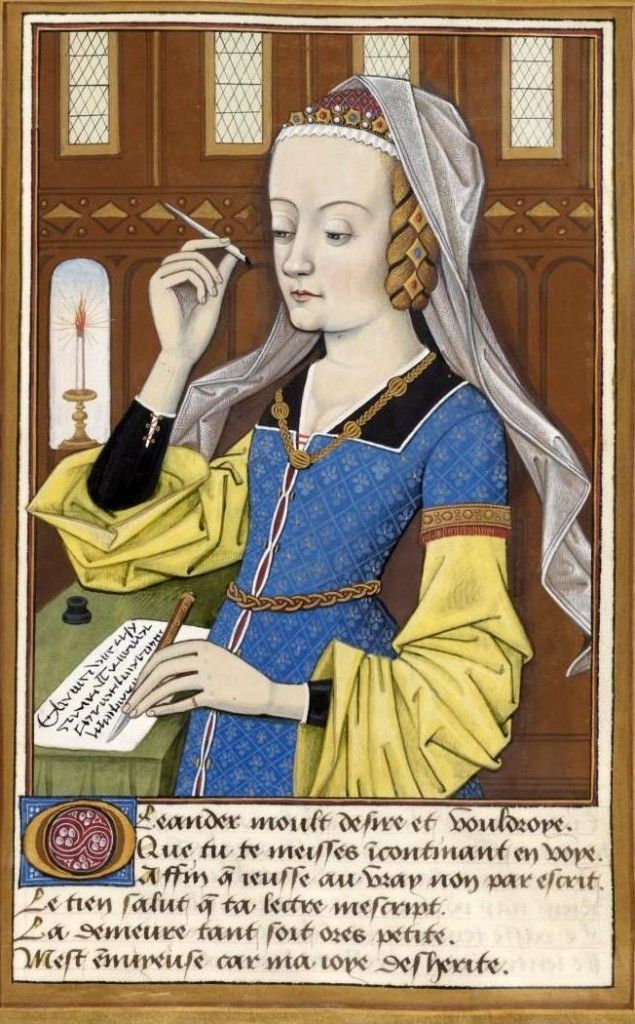 O Leander moult desire et vouldroye.
Que tu te meisses ĩcontinant en voye.
Affin q̃ ieusse au vray non par escrit.
Le tien salut q̃ ta lectre mescript.
La demeure tant soit ores petite.
Mest eñuyeuse car ma ioye desherite.